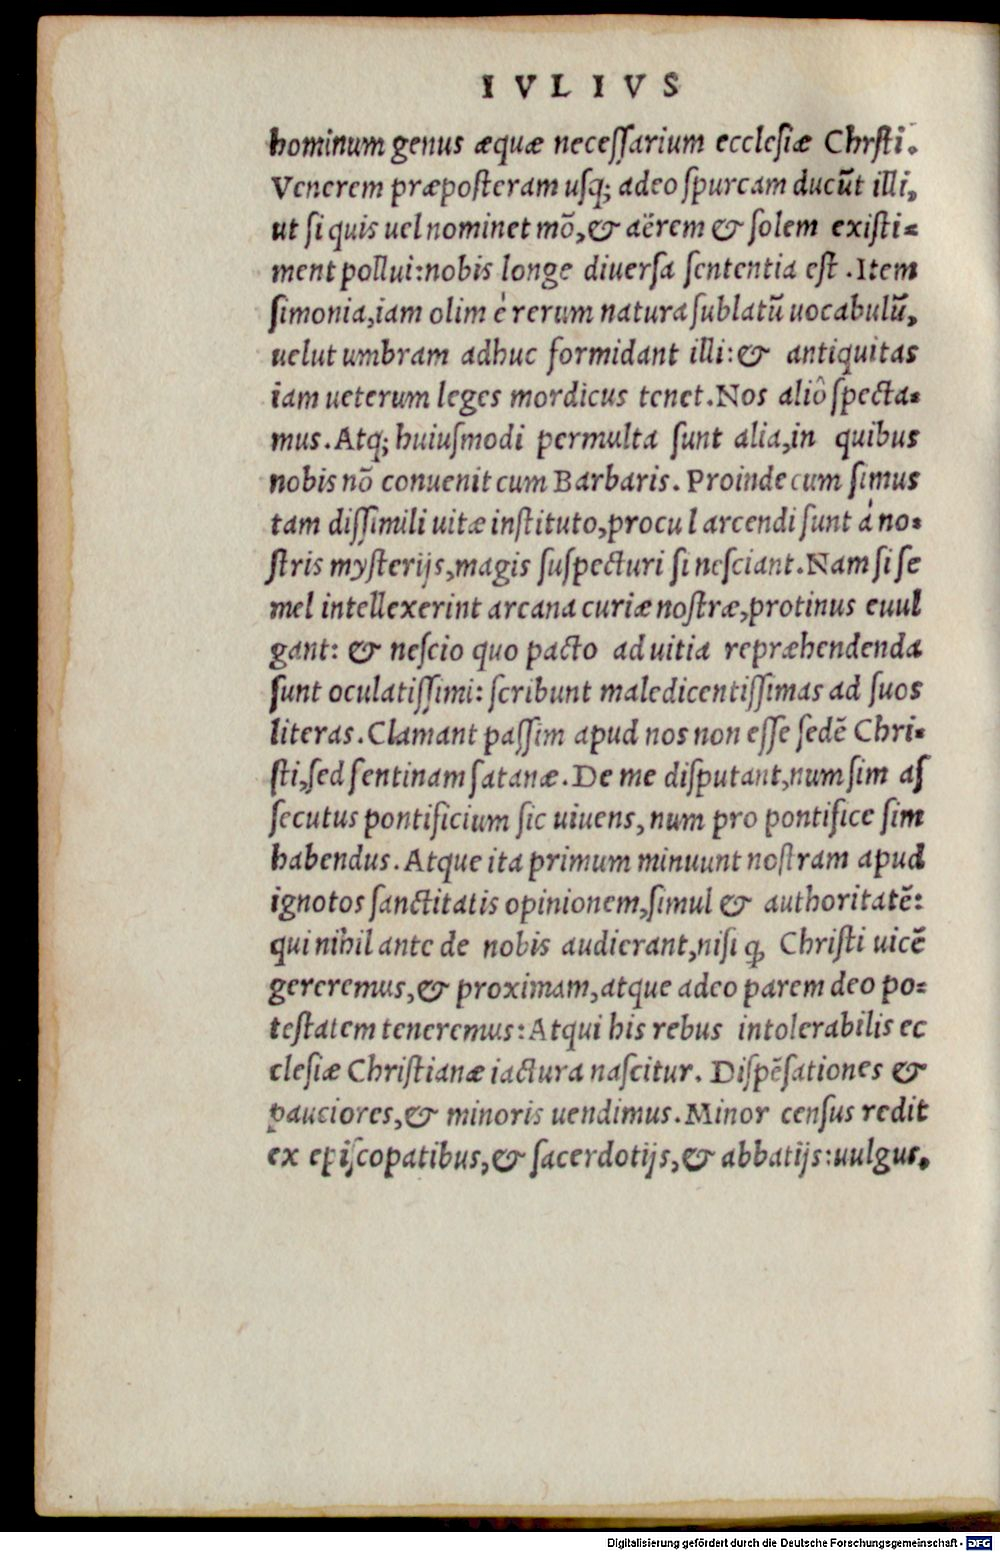 IVLIVS
hominum genus æquæ necessarium ecclesiæ Chrſti.
Venerem præpoſteram uſq; adeo ſpurcam ducūt illi,
ut ſi quis uel nominet mō, & aërem & ſolem exiſti=
ment pollui: nobis longe diuerſa ſententia eſt. Item
ſimonia, iam olim è rerum natura ſublatū uocabulū,
uelut umbram adhuc formidant illi: & antiquitas
iam ueterum leges mordicus tenet. Nos aliô ſpecta=
mus. Atq; huiuſmodi permulta ſunt alia, in quibus
nobis nō conuenit cum Barbaris. Proinde cum ſimus
tam diſſimili uitæ inſtituto, procul arcendi ſunt á no=
ſtris myſterijs, magis ſuſpecturi ſi neſciant. Nam ſi ſe
mel intellexerint arcana curiæ noſtræ, protinus euul
gant: & neſcio quo pacto ad uitia repræhendenda
ſunt oculatiſſimi: ſcribunt maledicentiſſimas ad ſuos
literas. Clamant paſſim apud nos non eſſe ſedē Chri=
ſti, ſed ſentinam ſatanæ. De me diſputant, num ſim aſ
ſecutus pontificium ſic uiuens, num pro pontifice ſim
habendus. Atque ita primum minuunt noſtram apud
ignotos ſanctitatis opinionem, ſimul & authoritatē:
qui nihil ante de nobis audierant, niſi ꝙ Chriſti uicē
gereremus, & proximam, atque adeo parem deo po=
teſtatem teneremus: Atqui his rebus intolerabilis ec
cleſiæ Chriſtianæ iactura naſcitur. Diſpēſationes &
pauciores, & minoris uendimus. Minor cenſus redit
ex epiſcopatibus, & ſacerdotijs, & abbatijs: uulgus,
Digitalisierung gefördert durch die Deutsche Forschungsgemeinschaft - DFG